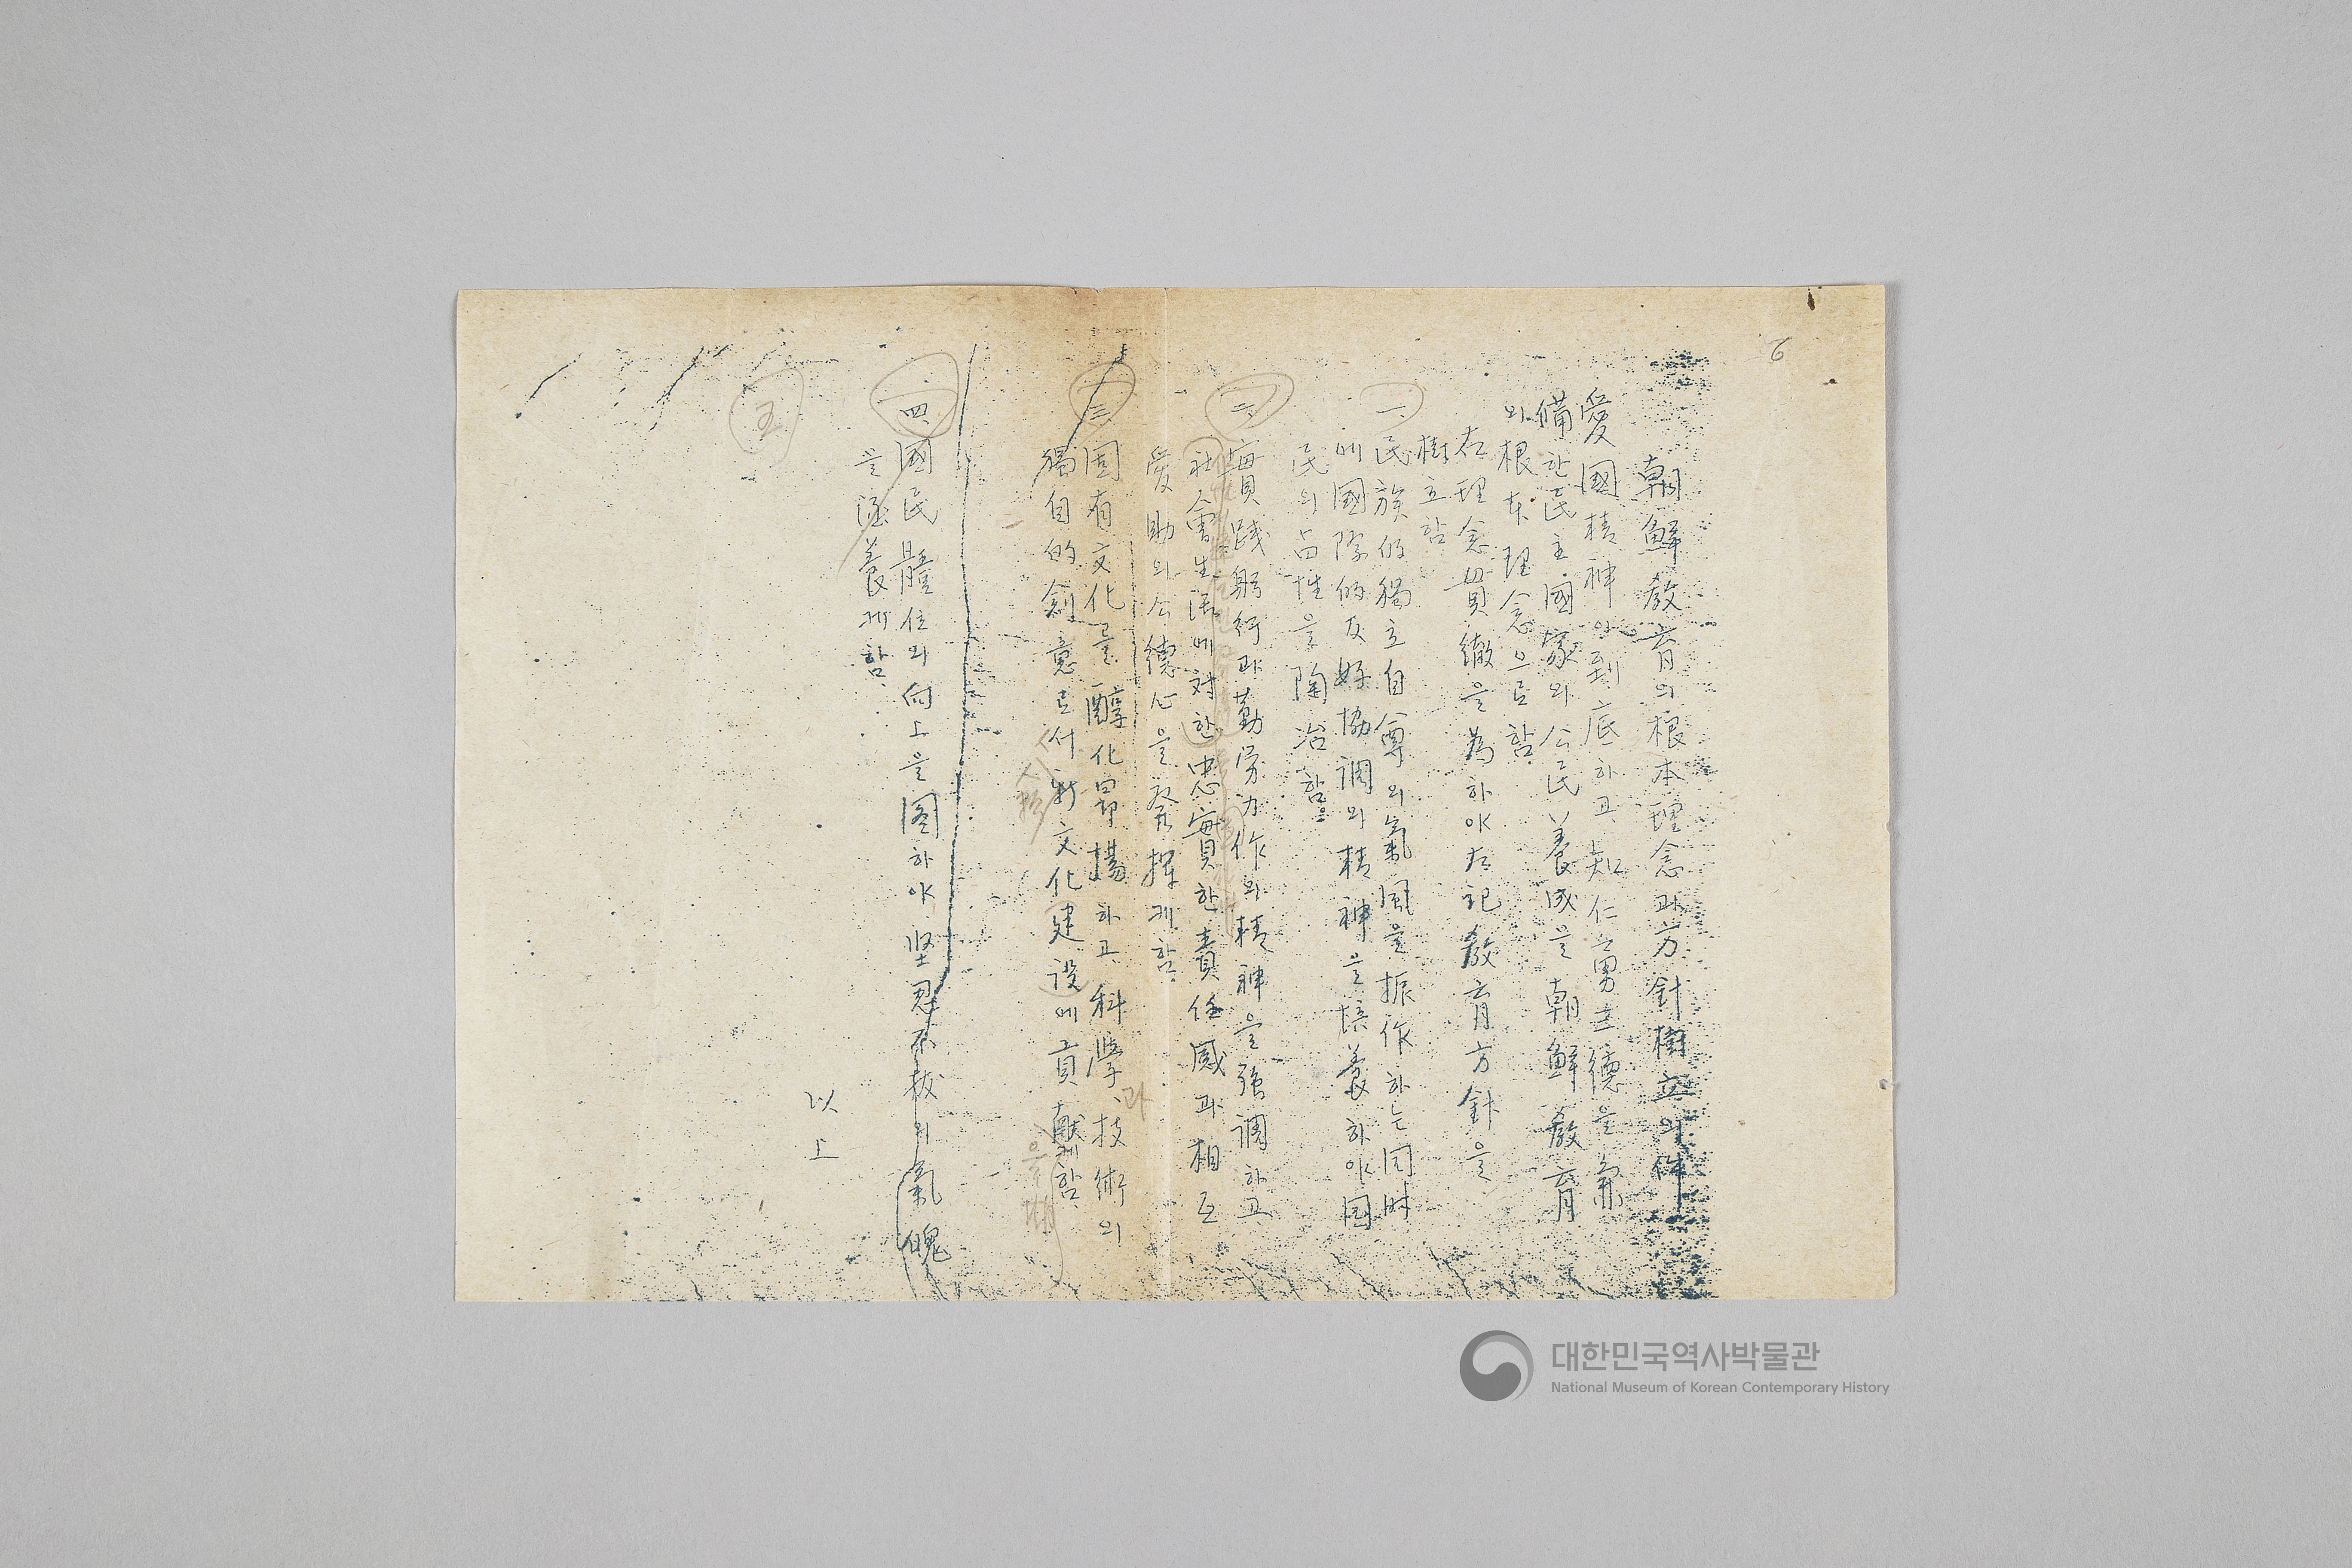 6
朝鮮教育의根本理念과方針樹立의件
愛國精神이到底하고知仁勇의德을兼
備한民主國家의公民養成을朝鮮教育
의根本理念으로함
右理念貫徹을爲하야左記教育方針을
樹立함
一、民族的獨立自尊의氣風을振作하는同時
에國際的友好協調의精神을培養하야国
民의品性을陶冶함
二、實践躬行과勤労力作의精神을強調하고
社會生活에対한忠實한責任感과相互
愛助의公德心을發揮케함
三、固有文化를醇化昻揚하고科學、技術의
獨自的創意로서新文化建設에貢献케함
四、國民體位의向上을圖하야堅忍不拔의氣魄
을涵養케함
五
以上
대한민국역사박물관
National Museum of Korean Contemporary History